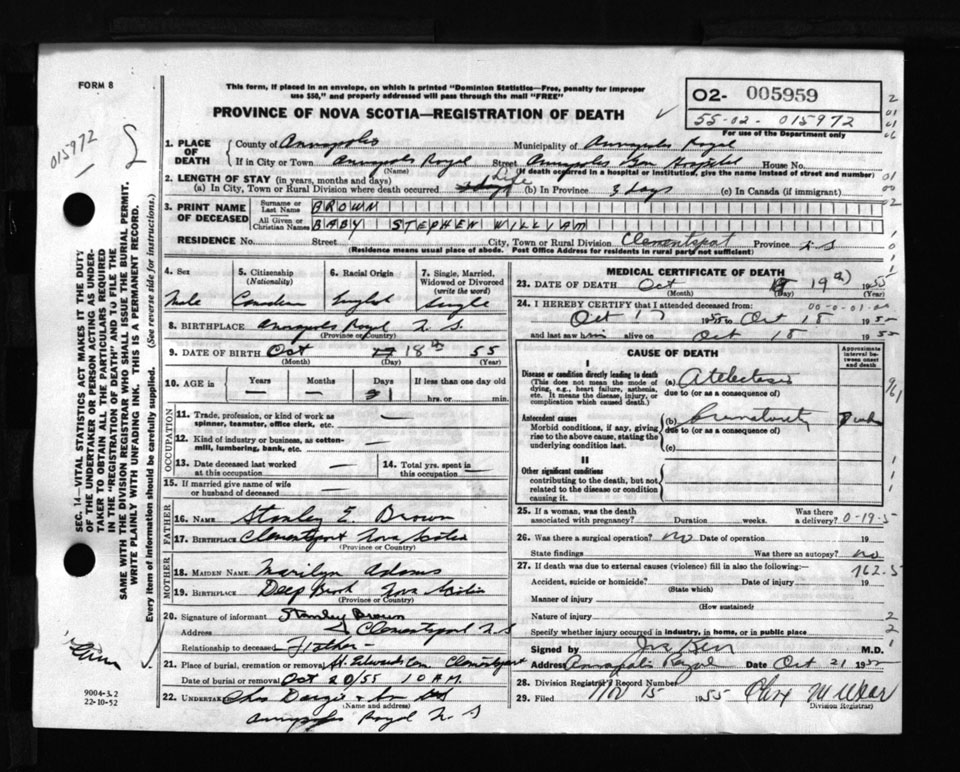 FORM 8
This form, if placed in an envelope, on which is printed "Dominion Statistics—Free, penalty for improper
use $50," and properly addressed will pass through the mail "FREE"
PROVINCE OF NOVA SCOTIA—REGISTRATION OF DEATH
O2- 005959
55-02- 015972
For use of the Department only
015972
SEC. 14—VITAL STATISTICS ACT MAKES IT THE DUTY
OF THE UNDERTAKER OR PERSON ACTING AS UNDER-
TAKER TO OBTAIN ALL THE PARTICULARS REQUIRED
IN THE "REGISTRATION OF DEATH" AND TO FILE THE
SAME WITH THE DIVISION REGISTRAR WHO SHALL ISSUE THE BURIAL PERMIT.
WRITE PLAINLY WITH UNFADING INK. THIS IS A PERMANENT RECORD.
Every item of information should be carefully supplied. (See reverse side for instructions.)
1. PLACE OF DEATH
County of Annapolis Municipality of Annapolis Royal
If in City or Town Annapolis Royal Street Annapolis Gen Hospital House No.
(Name) (If death occurred in a hospital or institution, give the name instead of street and number)
2. LENGTH OF STAY (in years, months and days)
(a) In City, Town or Rural Division where death occurred Life (b) In Province 3 days (c) In Canada (if immigrant)
3. PRINT NAME OF DECEASED
Surname or Last Name BROWN
All Given or Christian Names BABY STEPHEN WILLIAM
RESIDENCE No. Street City, Town or Rural Division Clementsport Province N.S
(Residence means usual place of abode. Post Office Address for residents in rural parts not sufficient)
4. Sex
Male
5. Citizenship
(Nationality)
Canadian
6. Racial Origin
English
7. Single, Married, Widowed or Divorced
(write the word)
Single
8. BIRTHPLACE Annapolis Royal N.S.
(Province or Country)
9. DATE OF BIRTH Oct 18th 55
(Month) (Day) (Year)
10. AGE in
Years Months Days If less than one day old
— — 1 hrs. or min.
OCCUPATION
11. Trade, profession, or kind of work as
spinner, teamster, office clerk, etc. —
12. Kind of industry or business, as cotton-
mill, lumbering, bank, etc. —
13. Date deceased last worked
at this occupation —
14. Total yrs. spent in
this occupation —
15. If married give name of wife
or husband of deceased —
FATHER
16. NAME Stanley E. Brown
17. BIRTHPLACE Clementsport Nova Scotia
(Province or Country)
MOTHER
18. MAIDEN NAME Marilyn Adams
19. BIRTHPLACE Deep Brook Nova Scotia
(Province or Country)
20. Signature of informant Stanley Brown
Address Clementsport N.S
Relationship to deceased Father
21. Place of burial, cremation or removal St. Edwards Cem Clementsport
Date of burial or removal Oct 20/55 10 A.M.
22. UNDERTAKER
(Name and address)
Annapolis Royal N.S
9004-3.2
22-10-52
MEDICAL CERTIFICATE OF DEATH
23. DATE OF DEATH Oct 19th 1955
(Month) (Day) (Year)
24. I HEREBY CERTIFY that I attended deceased from
Oct 17 1955 to Oct 18 1955
and last saw him alive on Oct 18 1955
CAUSE OF DEATH
Approximate interval between onset and death
I
Disease or condition directly leading to death
(This does not mean the mode of
dying, e.g., heart failure, asthenia,
etc. It means the disease, injury, or
complication which caused death.)
(a) Atelectasis
due to (or as a consequence of)
Antecedent causes
Morbid conditions, if any, giving
rise to the above cause, stating the
underlying condition last.
(b) Prematurity
due to (or as a consequence of)
(c)
II
Other significant conditions
contributing to the death, but not
related to the disease or condition
causing it.
25. If a woman, was the death
associated with pregnancy? Duration weeks. Was there
a delivery? 0-19-5
26. Was there a surgical operation? no Date of operation 19
State findings Was there an autopsy? no
27. If death was due to external causes (violence) fill in also the following:—
762.5
Accident, suicide or homicide? Date of injury 19
(State which)
Manner of injury
(How sustained)
Nature of injury
Specify whether injury occurred in industry, in home, or in public place
Signed by Kerr M.D.
Address Annapolis Royal Date Oct 21 1955
28. Division Registrar's Record Number
29. Filed Nov 15 1955
Division Registrar)